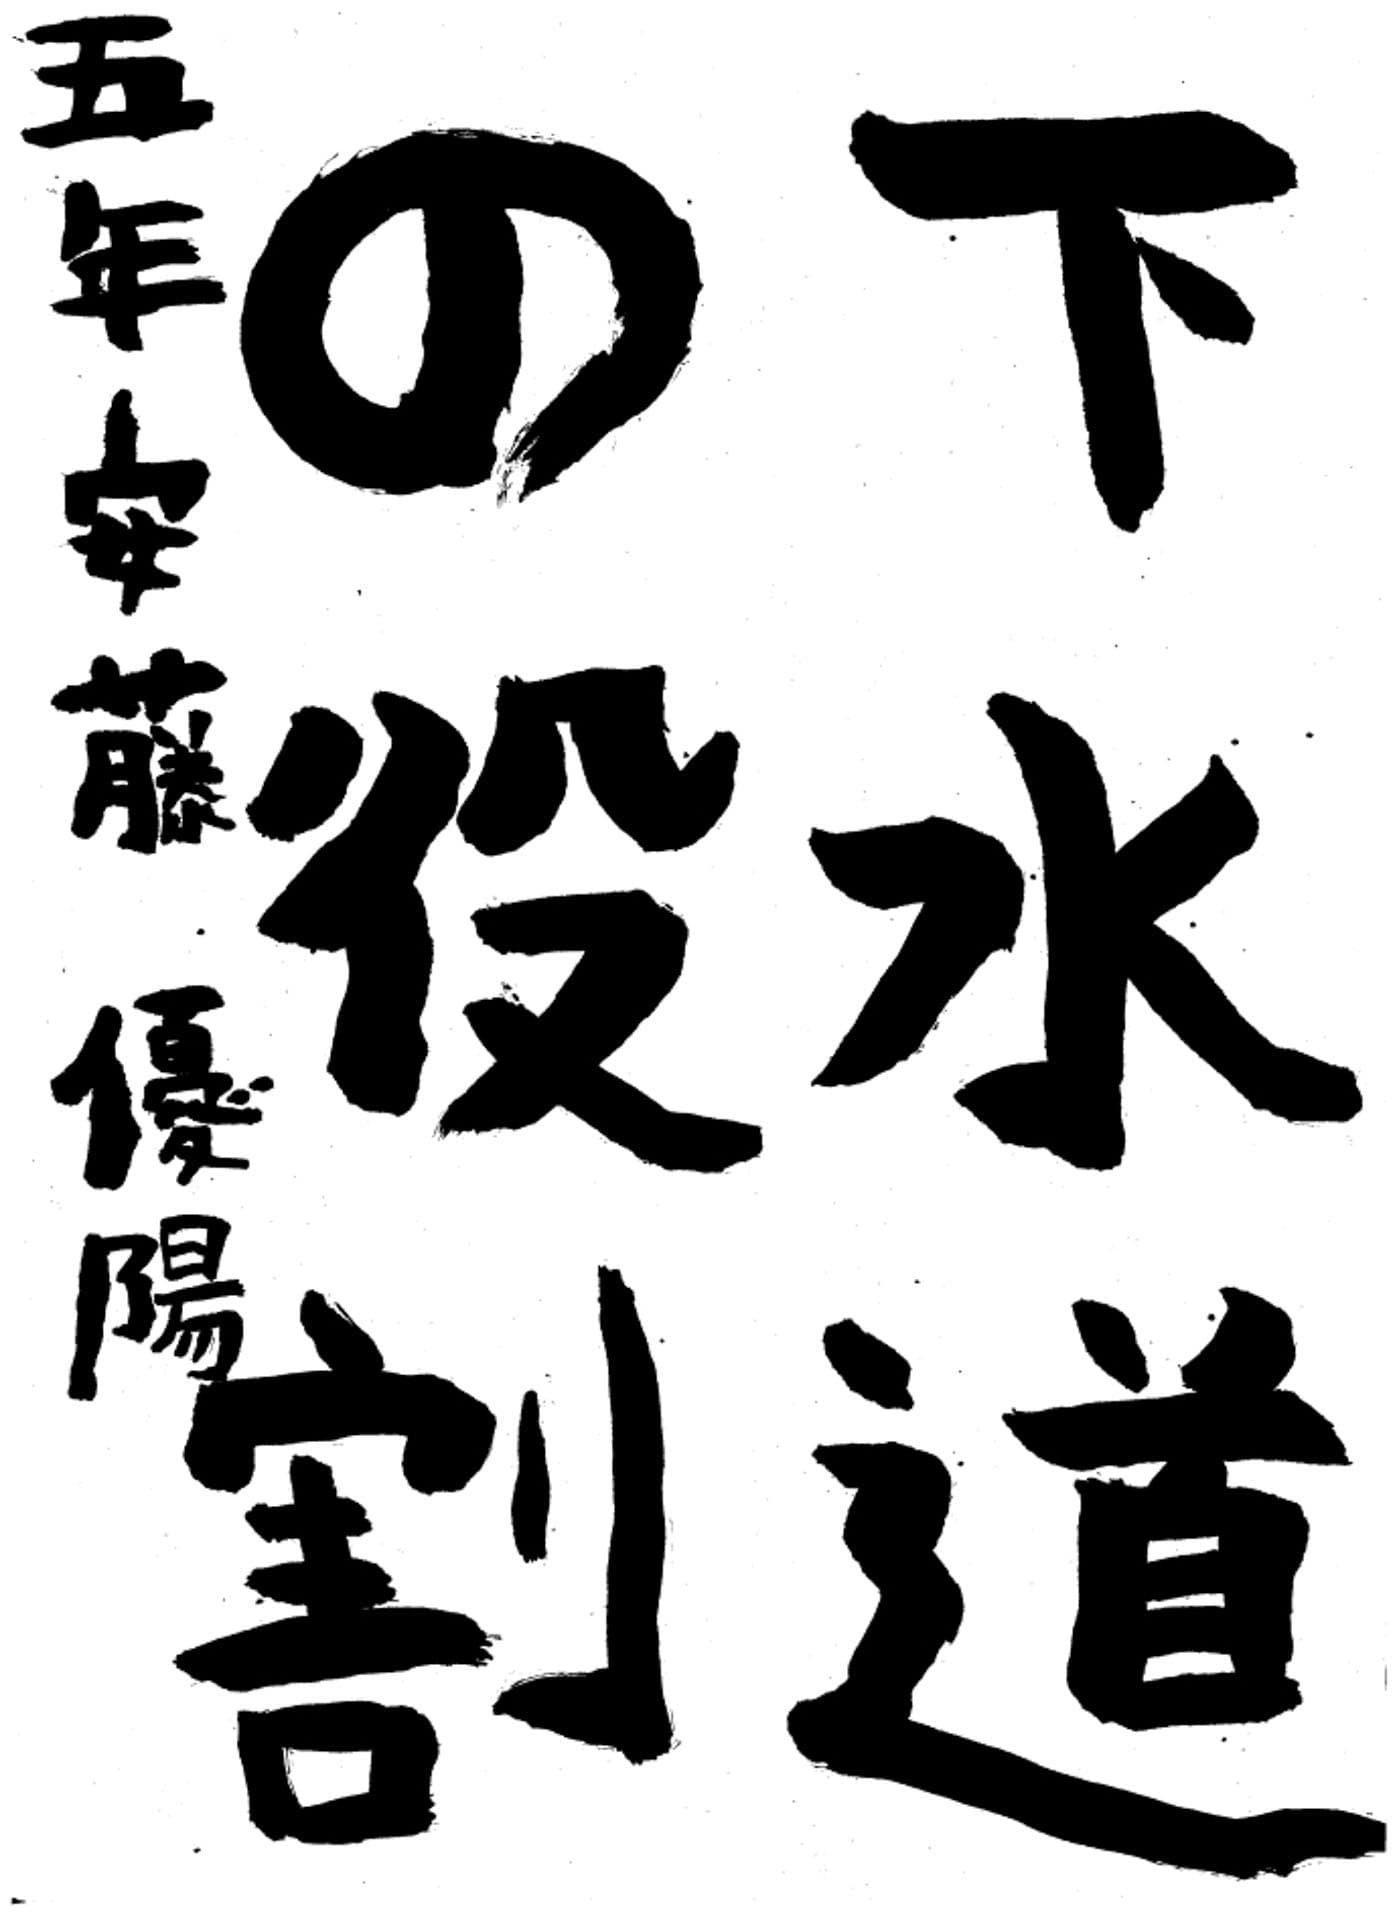 下水道
の役割
五年安藤優陽